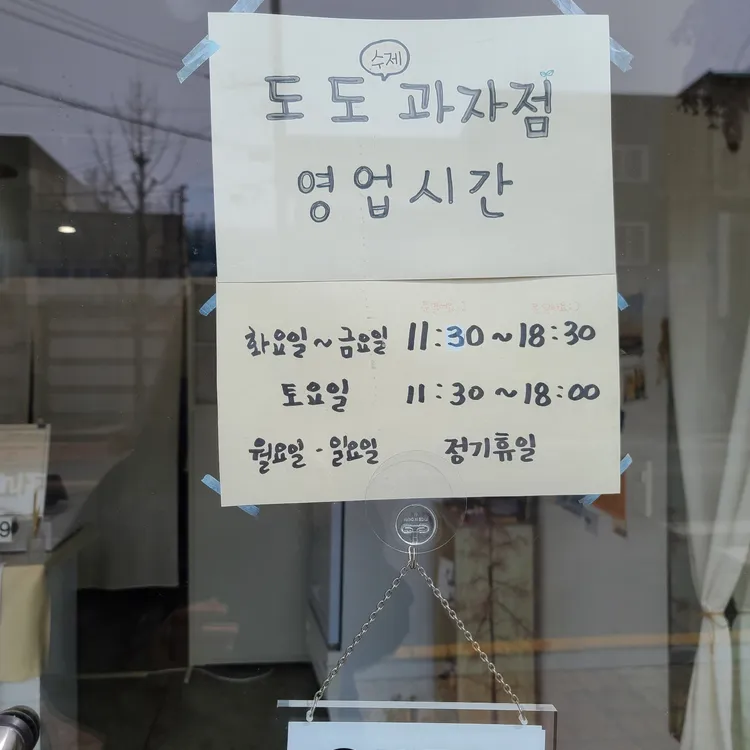 수제
도도 과자점
영업시간
화요일~금요일 11:30~18:30
토요일 11:30~18:00
월요일·일요일 정기휴일